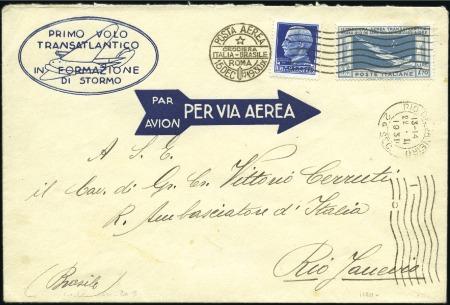 PRIMO VOLO
TRANSATLANTICO
IN FORMAZIONE
DI STORMO
POSTA AEREA
CROCIERA
ITALIA-BRASILE
ROMA
POSTE ITALIANE
PAR
AVION
PER VIA AEREA
RIO
13-14
1931
A S. E.
il Cav. di Gr. Cr. Vittorio Cerruti
R. Ambasciatore d'Italia
Rio Janeiro
(Brasile)